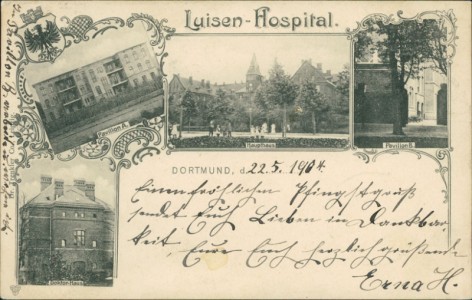 Luisen-Hospital.
Pavillon A.
Haupthaus
Pavillon B.
Doktor-Haus
DORTMUND, d. 22.5.1904.
Einen fröhlichen Pfingstgruß
sendet Euch Lieben in Dankbar
keit Eure Euch herzlich grüßende
Erna H.